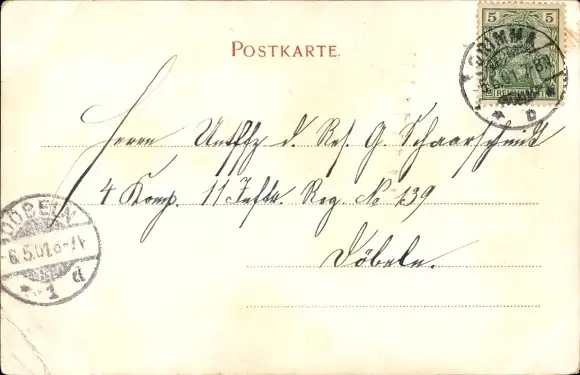 POSTKARTE.
5 5
REICHSPOST
GRIMMA
5.01
Herrn Untffz d. Res. G. Schaarschmidt
4 Komp. 11 Inftr. Reg. No 139
Döbeln.
DÖBELN
6.5.01.8-9V
* 1 d